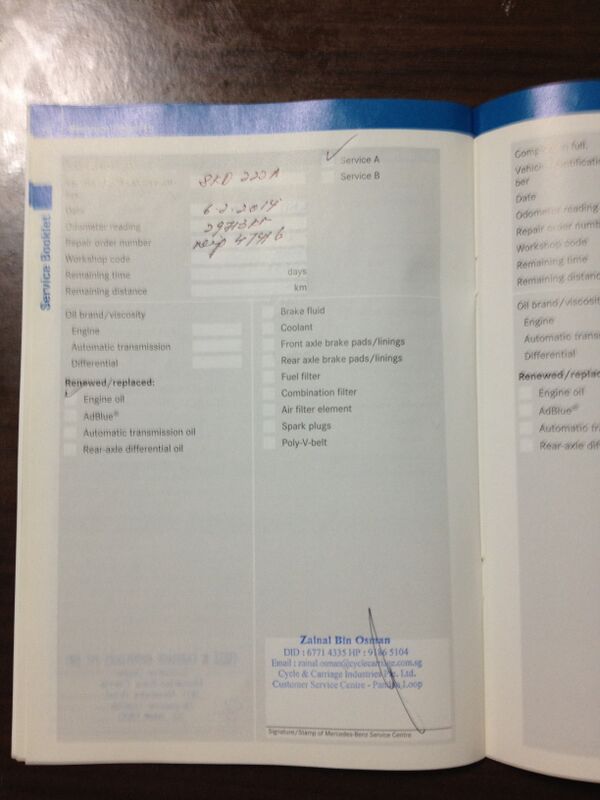 Service Booklet
Service A
Service B
SKD 222A
Date 6.2.2014
Odometer reading
Repair order number
Workshop code
Remaining time days
Remaining distance km
Oil brand/viscosity
Engine
Automatic transmission
Differential
Renewed/replaced:
Engine oil
AdBlue®
Automatic transmission oil
Rear-axle differential oil
Brake fluid
Coolant
Front axle brake pads/linings
Rear axle brake pads/linings
Fuel filter
Combination filter
Air filter element
Spark plugs
Poly-V-belt
Zainal Bin Osman
DID : 6771 4335 HP : 9186 5104
Email : zainal.osman@cyclecarriage.com.sg
Cycle & Carriage Industries Pte. Ltd.
Customer Service Centre - Pandan Loop
Signature/Stamp of Mercedes-Benz Service Centre
in full.
Date
Odometer reading
Repair order
Workshop code
Remaining time
Remaining distance
Oil brand/viscosity
Engine
Automatic
Differential
Engine oil
AdBlue®
Automatic